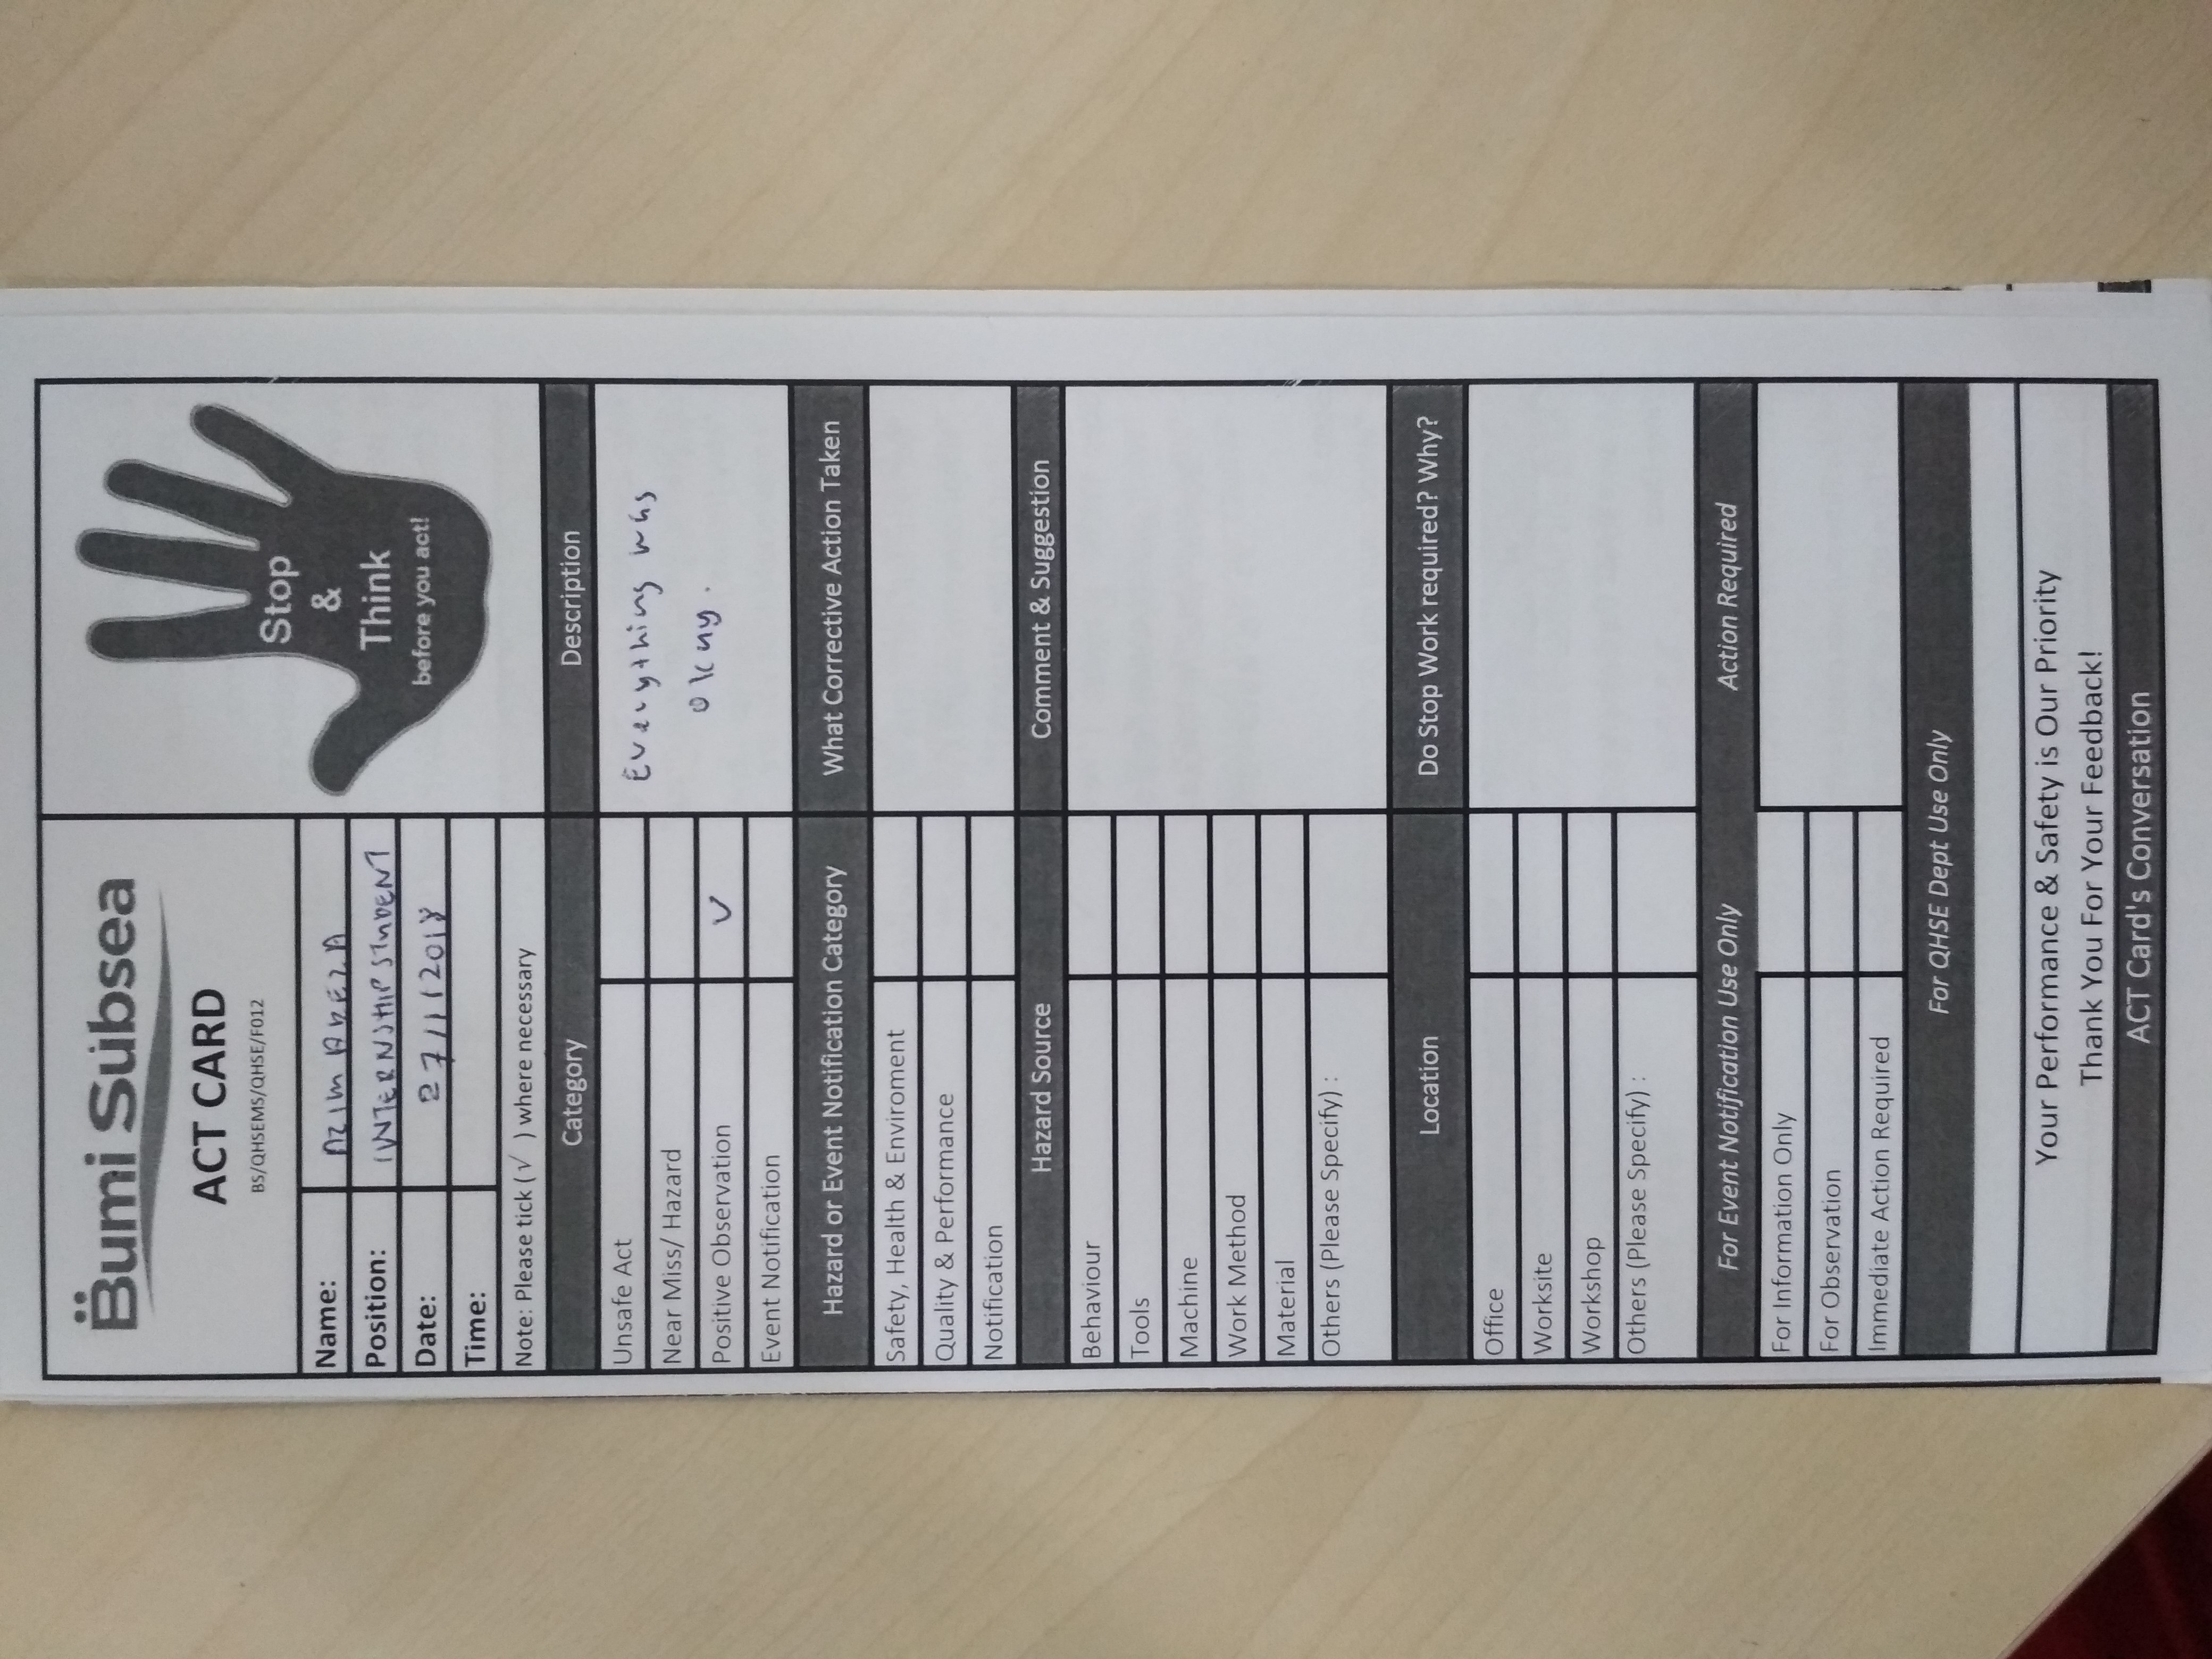 Bumi Subsea
ACT CARD
BS/QHSEMS/QHSE/F012
Stop
&
Think
before you act!
Name: AZIM
Position: INTERNSHIP STUDENT
Date: 27/11/2018
Time:
Note: Please tick (√ ) where necessary
Category Description
Unsafe Act
Near Miss/ Hazard
Positive Observation √
Event Notification
Everything was
okay.
Hazard or Event Notification Category What Corrective Action Taken
Safety, Health & Enviroment
Quality & Performance
Notification
Hazard Source Comment & Suggestion
Behaviour
Tools
Machine
Work Method
Material
Others (Please Specify) :
Location Do Stop Work required? Why?
Office
Worksite
Workshop
Others (Please Specify) :
For Event Notification Use Only Action Required
For Information Only
For Observation
Immediate Action Required
For QHSE Dept Use Only
Your Performance & Safety is Our Priority
Thank You For Your Feedback!
ACT Card's Conversation